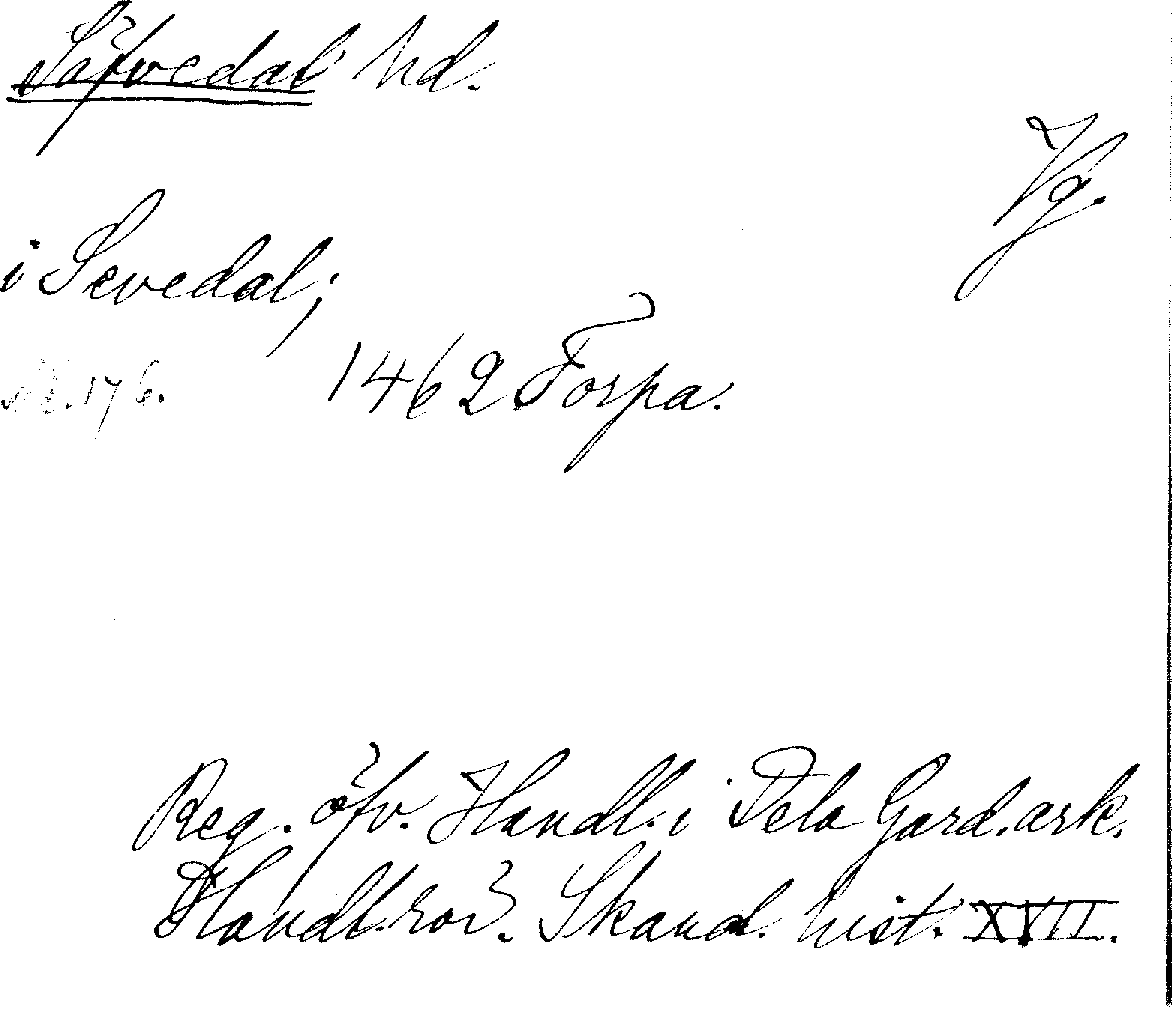 Säfvedal hd.
Vg.
i Sevedal;
176. 1462 Torpa.
Reg. öfv. Handl. i Dela Gard. ark.
Handl. rör. Skand. hist. XVII.